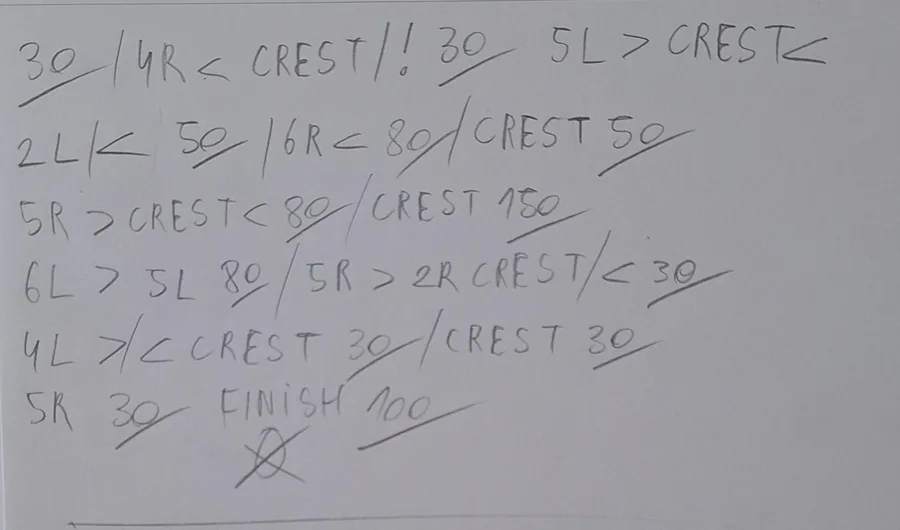 30 /4R < CREST/! 30 5L > CREST<
2L/< 50 /6R < 80/CREST 50
5R > CREST < 80/CREST 150
6L > 5L 80/5R > 2R CREST/< 30
4L >/< CREST 30/CREST 30
5R 30 FINISH 100